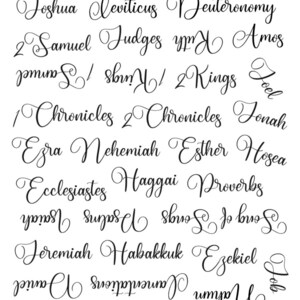 Joshua Leviticus Deuteronomy
2 Samuel Judges Ruth Amos
1 Samuel 1 Kings 2 Kings Joel
1 Chronicles 2 Chronicles Jonah
Ezra Nehemiah Esther Hosea
Ecclesiastes Haggai Proverbs
Isaiah Psalms Song of Songs
Jeremiah Habakkuk Ezekiel Job
Daniel Lamentations Nahum